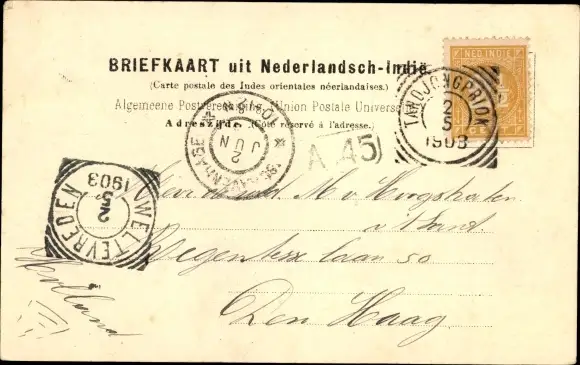 BRIEFKAART uit Nederlandsch-Indië.
(Carte postale des Indes orientales néerlandaises.)
Algemeene Postvereeniging Union Postale Universelle
Adreszijde. (Côté réservé à l'adresse.)
NED. INDIE
CENT
TANDJONGPRIOK
2
5
1903
'S GRAVENHAGE
2
JUN
A 45
WELTEVREDEN
2
5
1903
M. v. Hoogstraten
Regentesselaan 50
Den Haag
Holland